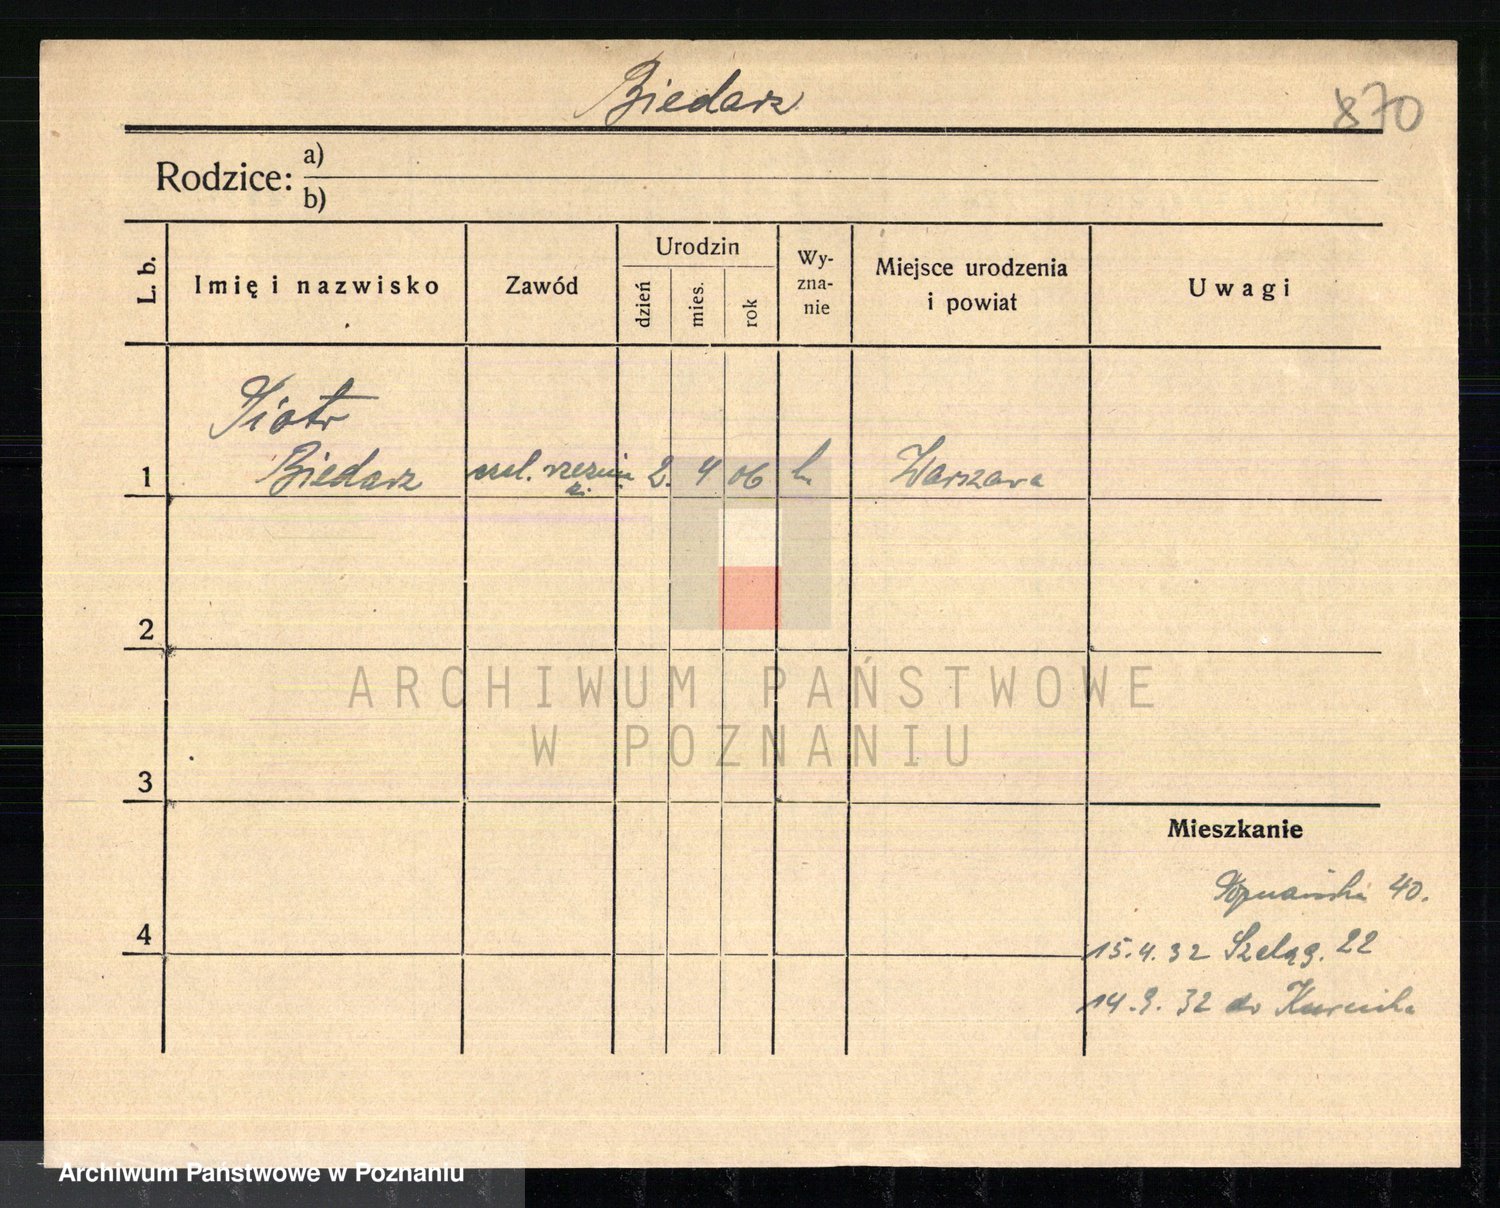 Biedarz
870
Rodzice: a)
b)
L. b.
Imię i nazwisko
Zawód
Urodzin
dzień
mies.
rok
Wy-
zna-
nie
Miejsce urodzenia
i powiat
Uwagi
Piotr
1 Biedarz czel. 2. 4 06 k. Warszawa
2
3
4
ARCHIWUM PAŃSTWOWE
W POZNANIU
Mieszkanie
Poznańska 40.
15.4.32 Szeląg. 22
14.9.32 do Kurnika
Archiwum Państwowe w Poznaniu